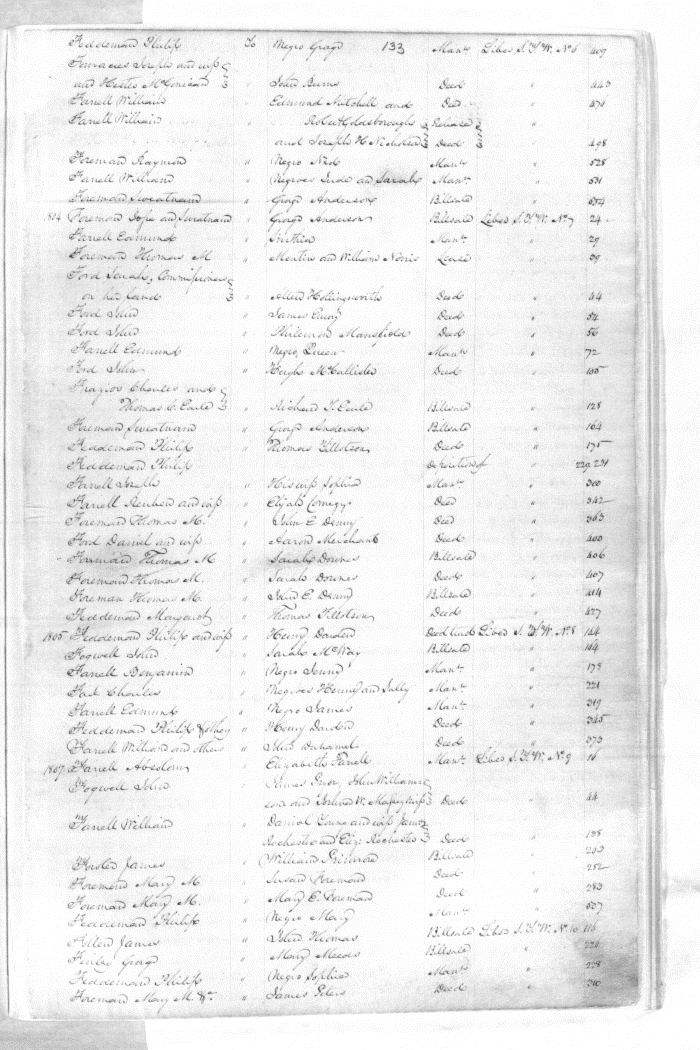 Feddeman Philip To Negro George 133 Man.t Liber S.T.W. No 6 409
Joseph and wife
and Hester John Burns Deed " 443
Farrell William " Edmund Mitchell and Deed " 474
Farrell William " Robert Goldsborough Release
and Joseph H. Nicholson Deed " 498
Foreman Raymon " Negro Ned Man.t " 528
Farrell William " Negroes Jude and Sarah Man.t " 531
Foreman Sweatnam " George Anderson Billsale " 554
1804 Foreman Sofia and Sweatnam " George Anderson Billsale Liber S.T.W. No 7 24
Farrell Edmund " Man.t " 29
Foreman Thomas M " and William Norris " 39
Ford Sarah, Commissioners
on her land " Hollingsworth Deed " 44
Ford John " James Deed " 52
Ford John " Philemon Mansfield Deed " 56
Farrell Edmund " Negro Queen Man.t " 72
Ford John " Hugh McCallister Deed " 105
Frazier Charles and
Thomas C. Earle " Richard T. Earle Billsale " 128
Foreman Sweatnam " George Anderson Billsale " 164
Feddeman Philip " Thomas Tillotson Deed " 175
Feddeman Philip Deposition of " 229.231
Farrell Joseph " His wife Sophia Man.t " 300
Farrell Reuben and wife " Elijah Comegys Deed " 342
Foreman Thomas M. " John E. Denny Deed " 363
Ford Daniel and wife " Aaron Merchant Deed " 400
Foreman Thomas M " Sarah Downes Billsale " 406
Foreman Thomas M. " Sarah Downes Deed " 407
Foreman Thomas M. " John E. Denny Billsale " 414
Feddeman Margaret " Thomas Tillotson Deed " 427
1805 Feddeman Philip and wife " Henry Darden Deed trust Liber S.T.W. No 8 144
Fogwell John " Sarah McWay Billsale " 164
Farrell Benjamin " Negro Jenny Man.t " 178
Charles " Negroes Henny and Sally Man.t " 221
Farrell Edmund " Negro James Man.t " 319
Feddeman Philip & others " Henry Darden Deed " 345
Farrell William and others " John Duhamel Deed " 373
1807 Farrell " Elizabeth Farrell Man.t Liber S.T.W. No 9 16
Fogwell John " James John William
son and W. wife Deed " 44
Farrell William " Daniel and wife James
Rochester and Eliz: Rochester Deed " 138
Forster James " William Primrose Billsale " 203
Foreman Mary M " Susan Foreman Deed " 282
Foreman Mary M. " Mary E. Foreman Deed " 283
Feddeman Philip " Negro Mary Man.t " 507
James " John Thomas Billsale Liber S.T.W. No 10 116
Finley George " Mary Meeds Billsale " 224
Feddeman Philip " Negro Sophia Man.t " 228
Foreman Mary M. &c. " James Peters Deed " 310